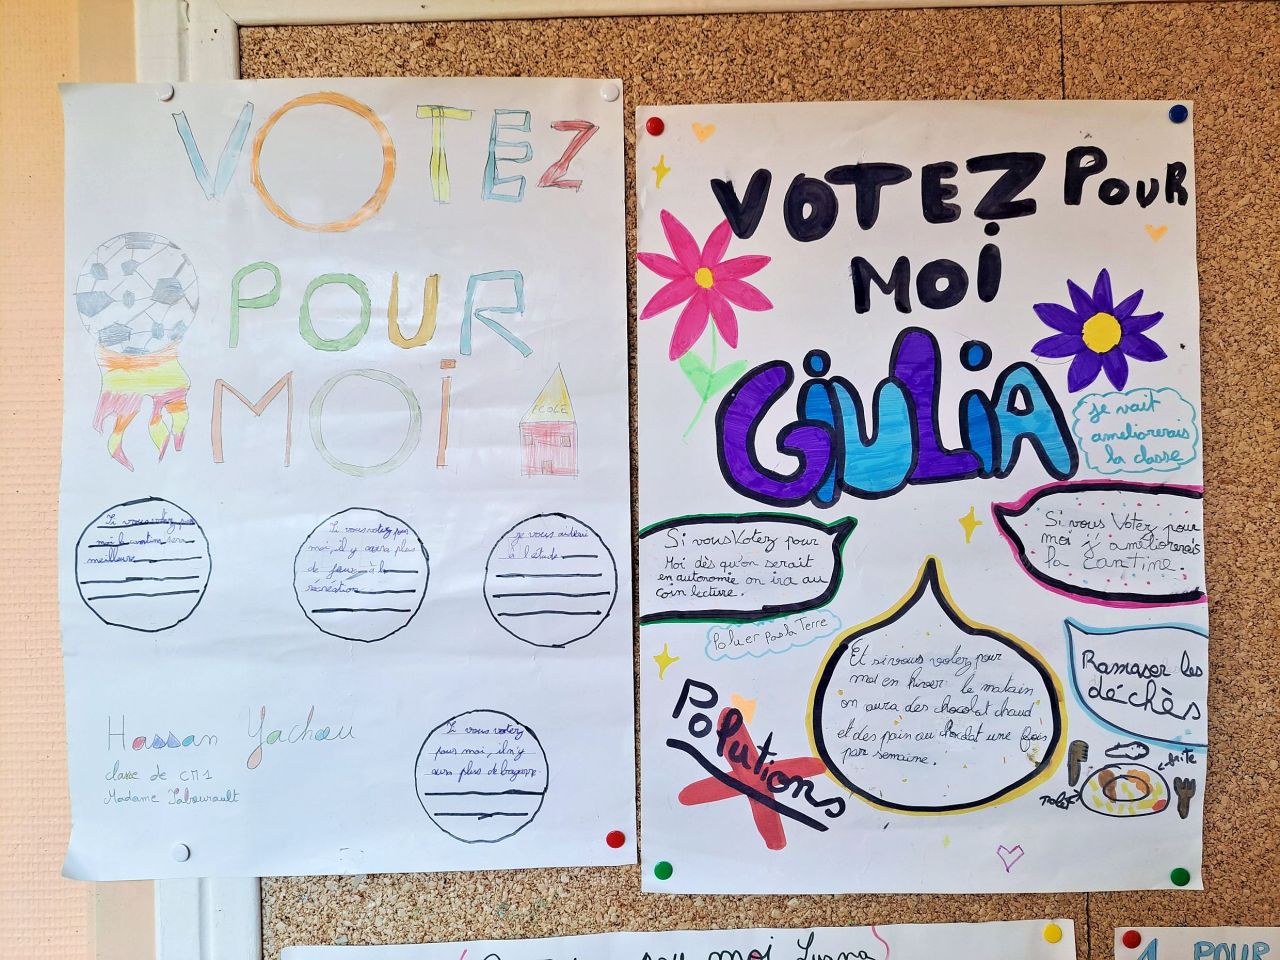 VOTEZ
POUR
MOI
ECOLE
Si vous votez pour
moi la cantine sera
meilleure
Si vous votez pour
moi, il y aura plus
de jeux à la
récréation
je vous aiderai
à l'étude
Si vous votez
pour moi, il n'y
aura plus de bagarre.
Hassan Yachou
classe de CM1
Madame Tabourault
VOTEZ POUR
MOI
GIULIA
je vait
ameliorerais
la classe
Si vous Votez pour
Moi dès qu'on serait
en autonomie on ira au
coin lecture.
Si vous Votez pour
moi j'améliorerais
la cantine.
Poluer pas la Terre
Et si vous votez pour
moi en hiver le matain
on aura des chocolat chaud
et des pain au chocolat une fois
par semaine.
Ramaser les
déchès
Polutions
frite
poulet
moi Luana
1 POUR